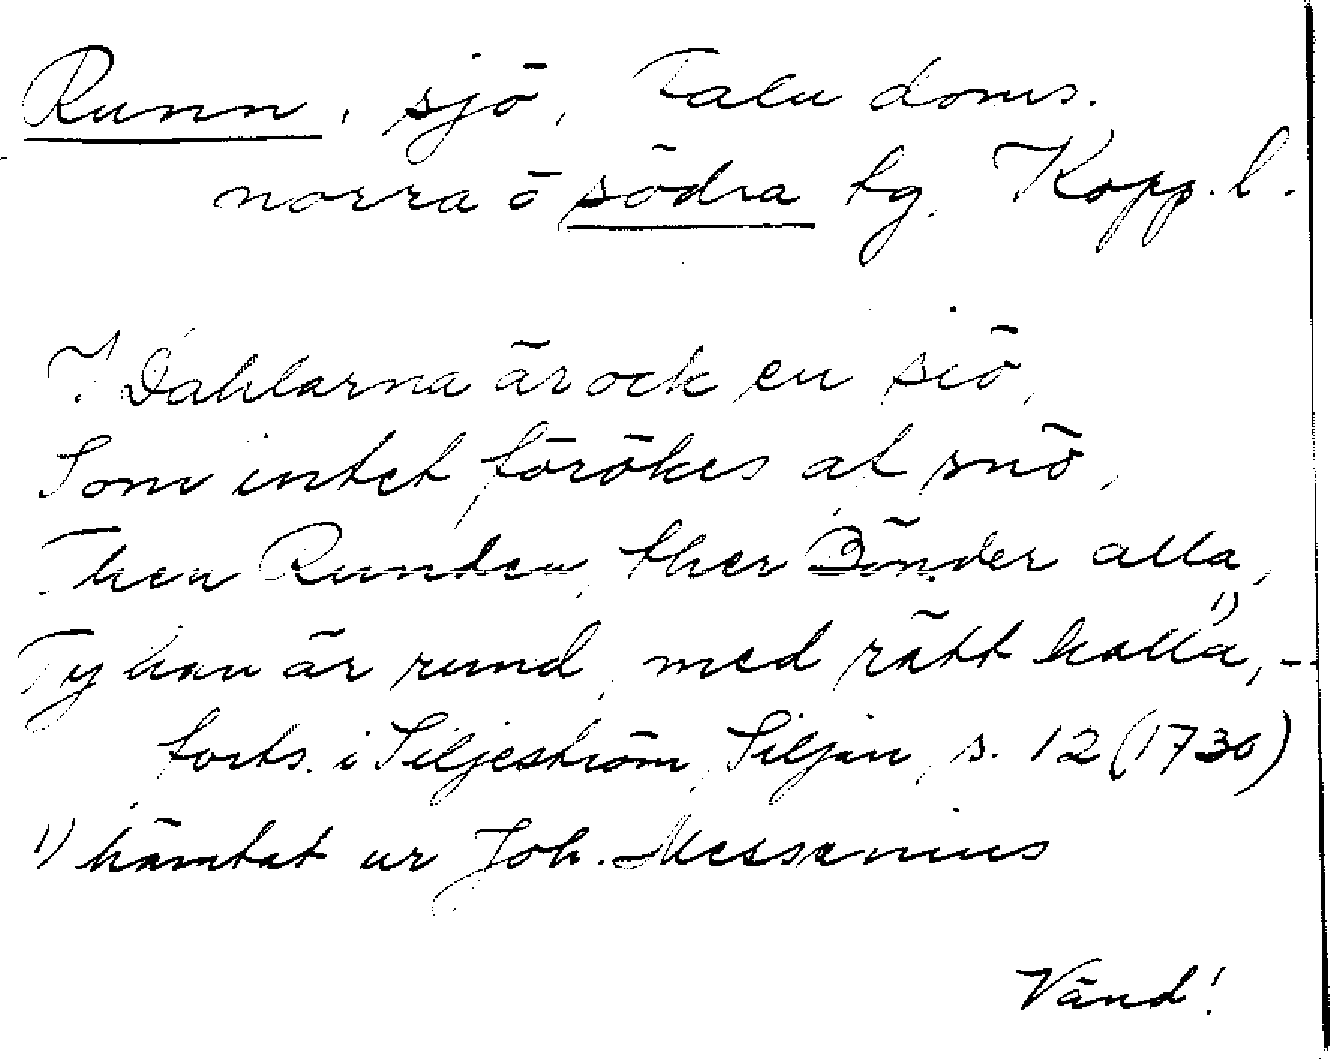 Runn, sjö, Falu doms.
norra o södra tg. Kopp. l.
I Dahlarna är ock en siö,
Som intet förökes af snö,
Then Runden, ther Bönder alla,
Ty han är rund, med rätt kalla, 1) -
forts. i Siljeström, Siljan, s. 12 (1730)
1) hämtat ur Joh. Messenius
Vänd!